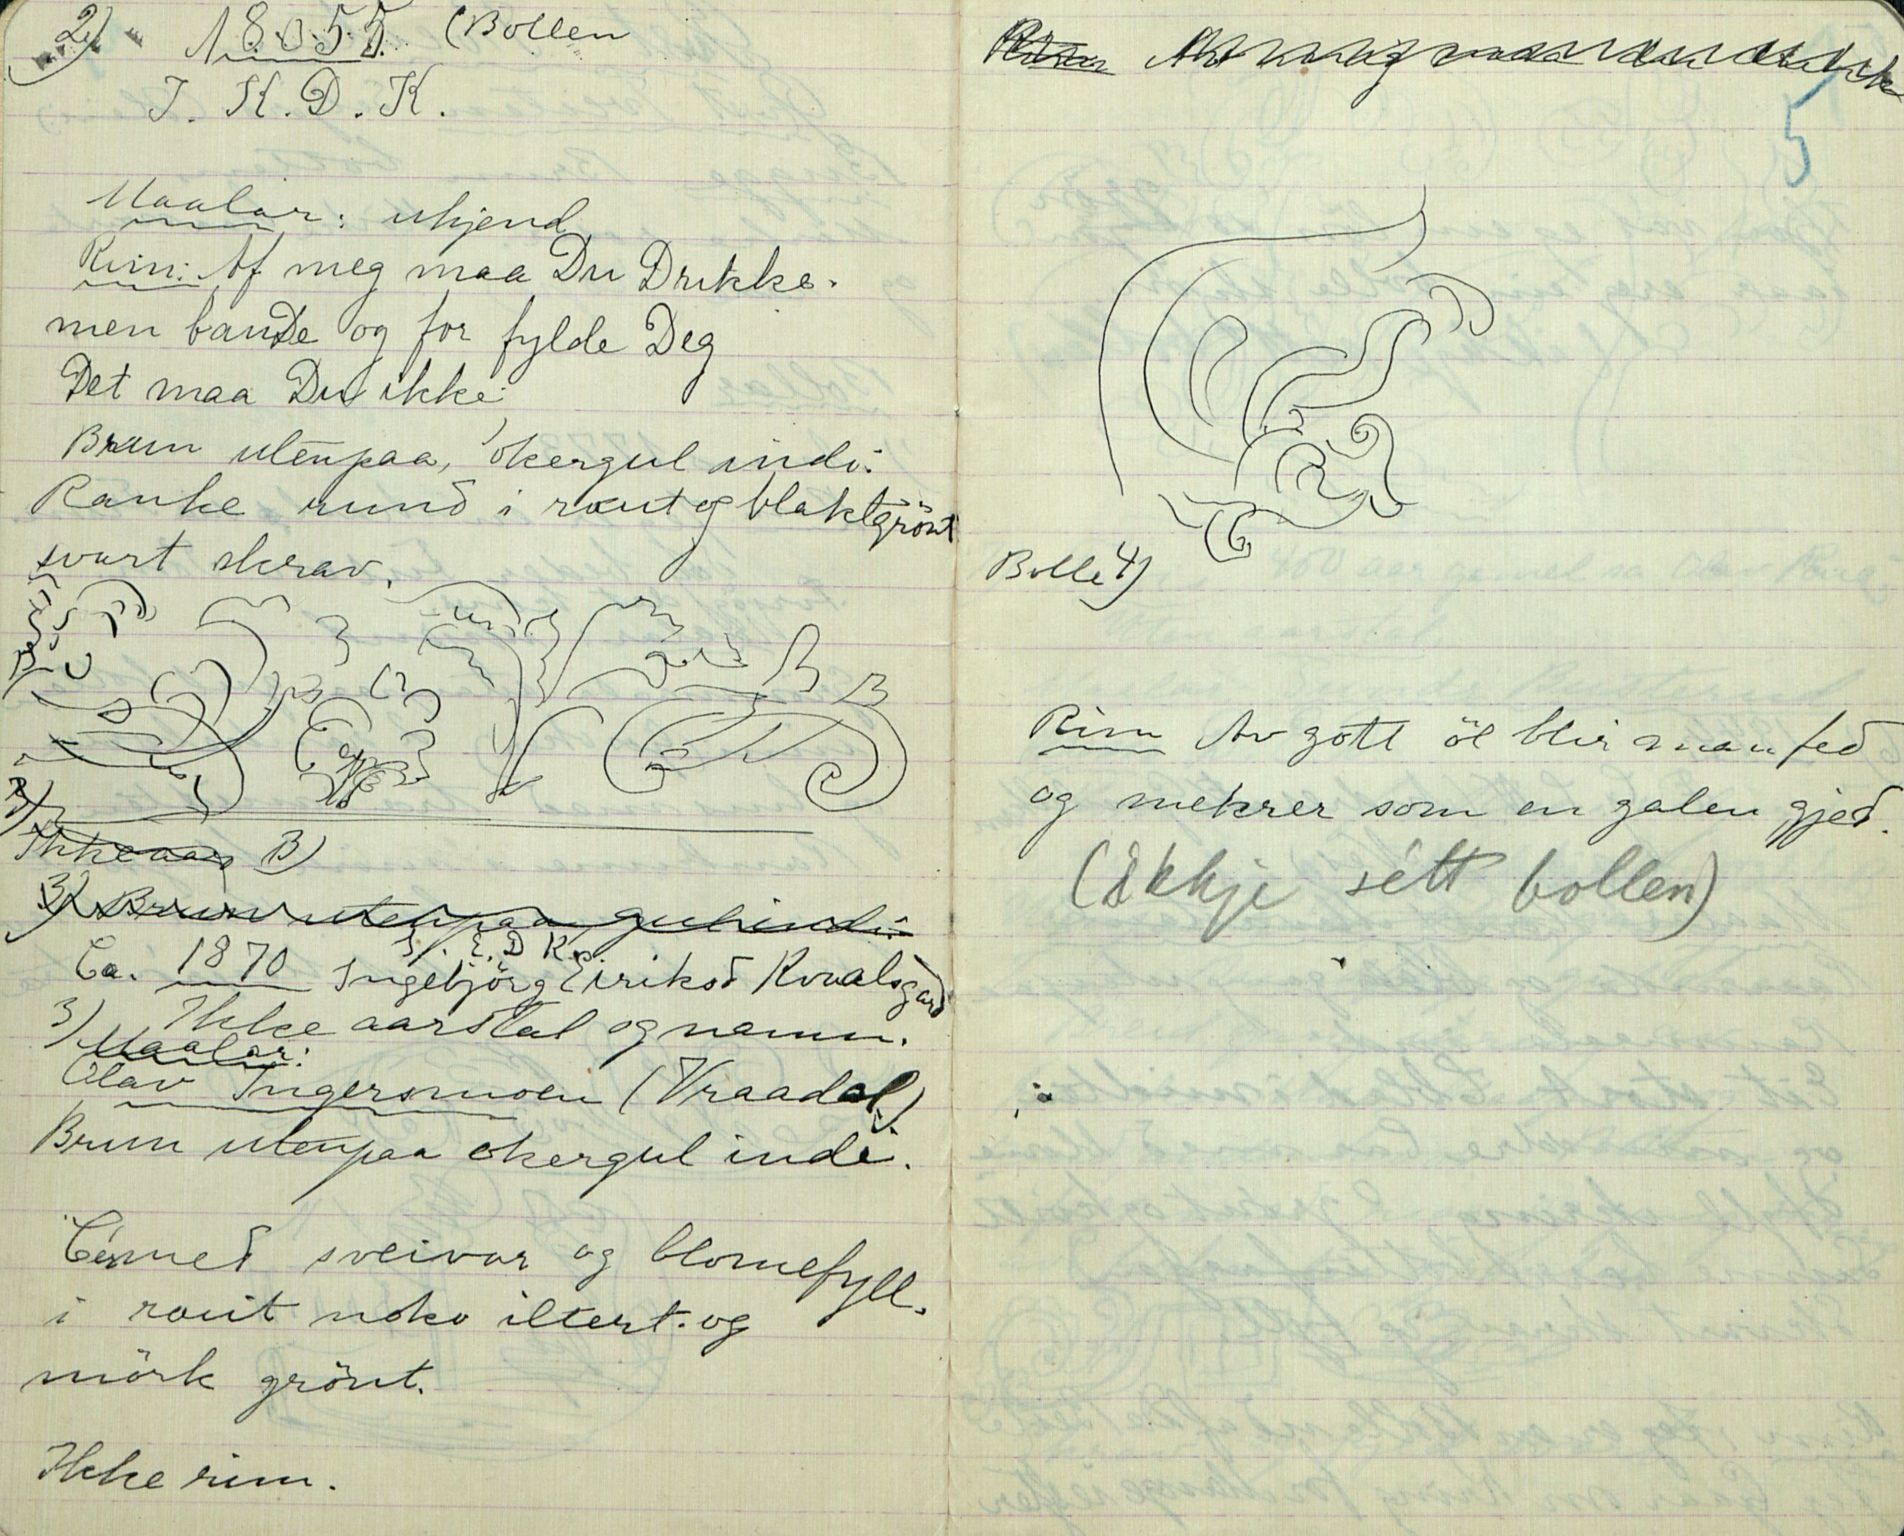 2) 1855. (Bollen
J. K. D. K.
Maalar: ukjend
Rim: Af meg maa Du Drikke.
men bande og for fylde Deg
Det maa Du ikke.
Brun utenpaa, okergul indi.
Ranke rund i raut og blaktgrönt
svart skrav.
3)
Ikke aar B)
3) Brun utenpaa gul indi.
I. E. D K.
Ca. 1870 Ingebjörg Eiriksd Kvaalsgard
3) Ikke aarstal og namn.
Maalar:
Olav Ingersmoen (Vraadal)
Brun utenpaa okergul indi.
C med sveivar og blomefyll.
i raut noko iltert. og
mörk grönt.
Ikke rim.
5
Bolle 4)
Rim Av gott öl blir man fed
og mekrer som en galen gjed.
(ikkje sétt bollen)